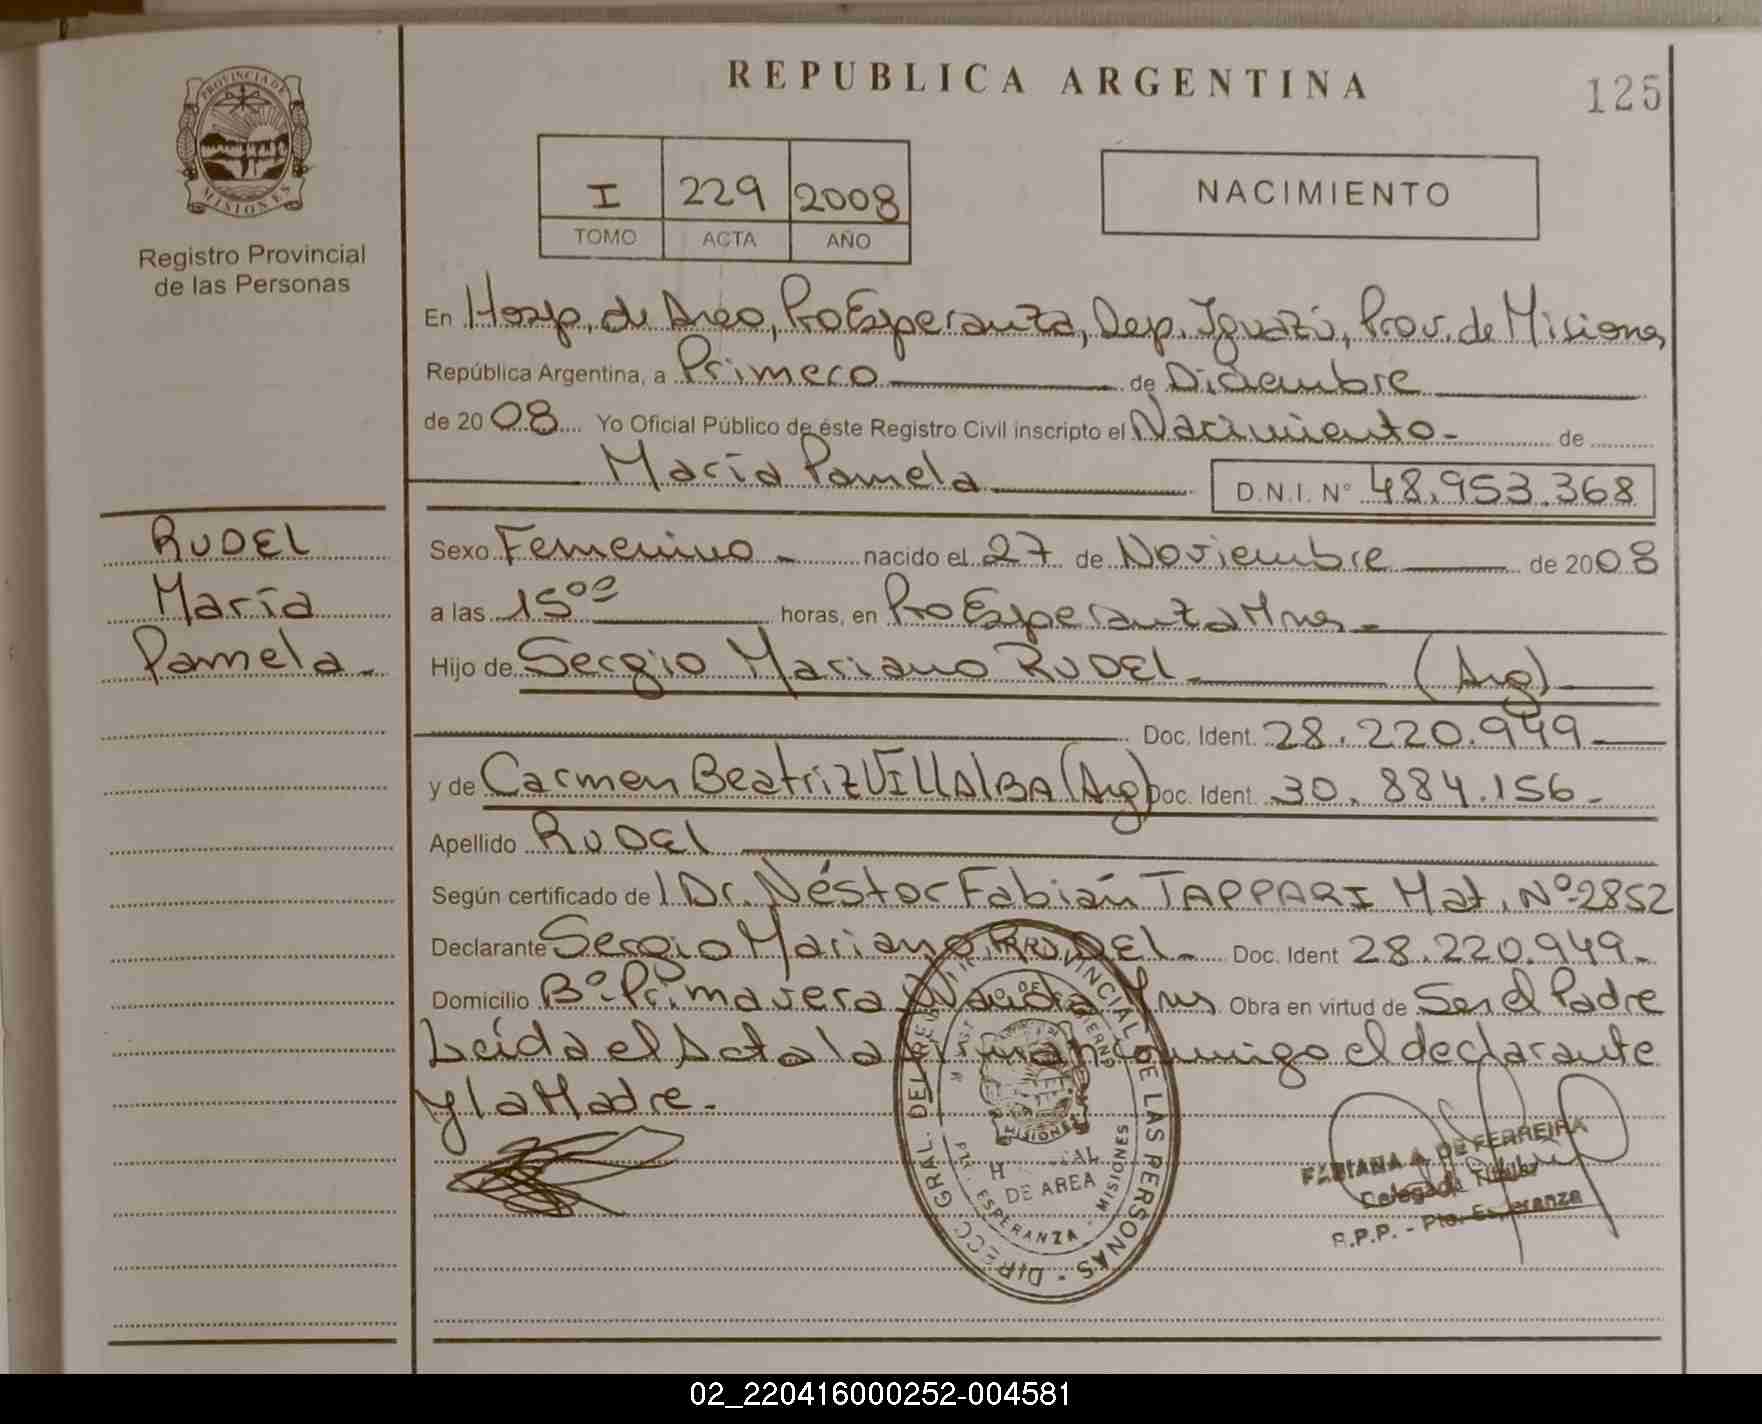 PROVINCIA DE
MISIONES
Registro Provincial
de las Personas
REPUBLICA ARGENTINA
125
I 229 2008
TOMO ACTA AÑO
NACIMIENTO
En Hosp. de Area, Pto Esperanza, Dep. Iguazú, Prov. de Misiones
República Argentina, a Primero de Diciembre
de 2008 Yo Oficial Público de éste Registro Civil inscripto el Nacimiento- de
María Pamela D.N.I. Nº 48.953.368
RUDEL
María
Pamela-
Sexo Femenino - nacido el 27 de Noviembre de 2008
a las 15ºº horas, en Pto Esperanza Mnes-
Hijo de Sergio Mariano RUDEL- (Arg)
Doc. Ident. 28.220.949
y de Carmen Beatriz VILLALBA (Arg) Doc. Ident. 30.884.156-
Apellido RUDEL
Según certificado del Dr. Néstor Fabián TAPPARI Mat. Nº 2852
Declarante Sergio Mariano RUDEL- Doc. Ident 28.220.949-
Domicilio Bº Primavera Wanda Mns Obra en virtud de Ser el Padre
Leída el Acta la firman conmigo el declarante
y la Madre-
DIRECC. GRAL. DEL REGISTRO PROVINCIAL DE LAS PERSONAS -
MISIONES
DE AREA
PTO. ESPERANZA - MISIONES
FABIANA A. DE FERREIRA
Delegada Titular
R.P.P. - Pto. Esperanza
02_220416000252-004581